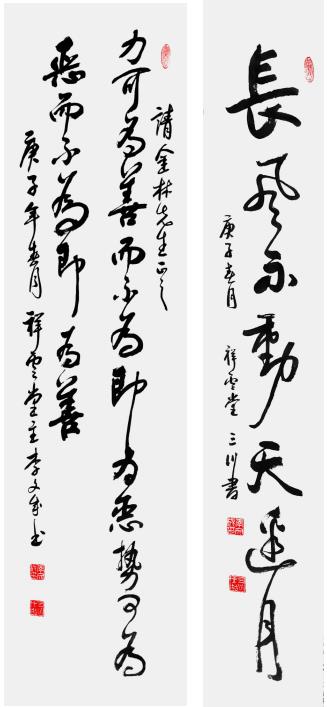 長風不動天邊月
庚子春月 祥雲堂 三川書
請金林先生正之
力可為善而不為即為惡勢可為
惡而不為即為善
庚子年春月 祥雲堂主李文成书